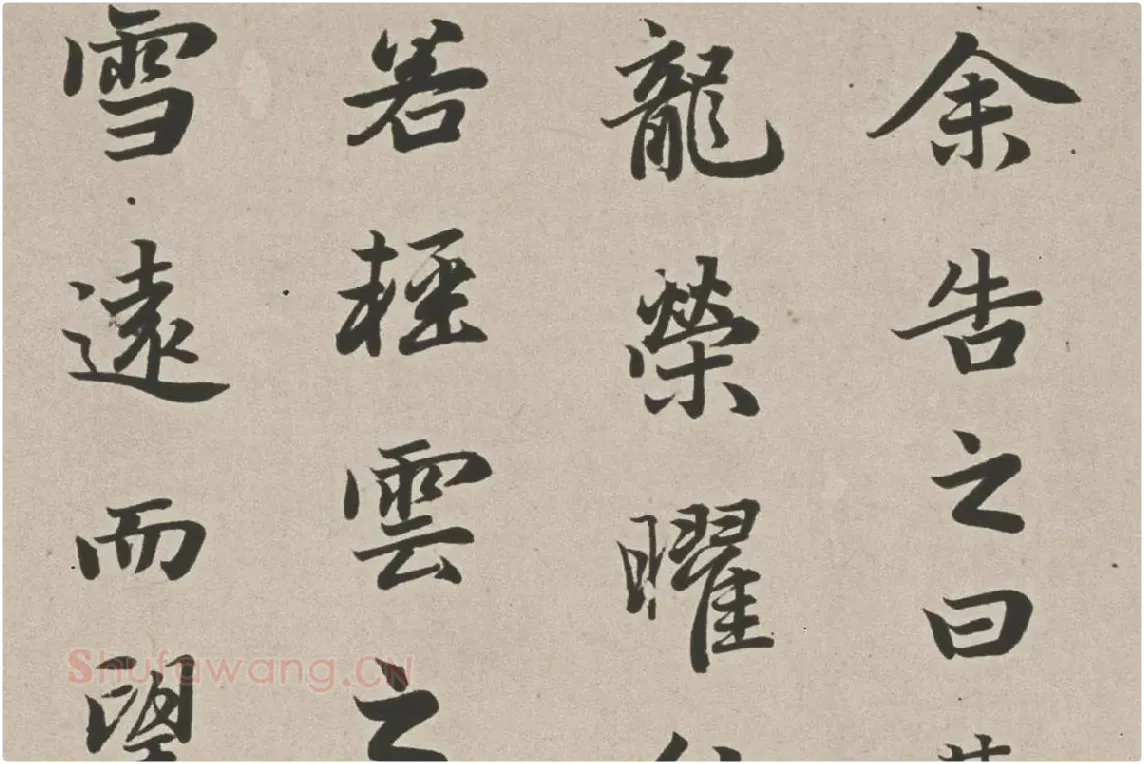 余告之曰
龍榮曜
若輕雲之
雪遠而望
Shufawang.CN